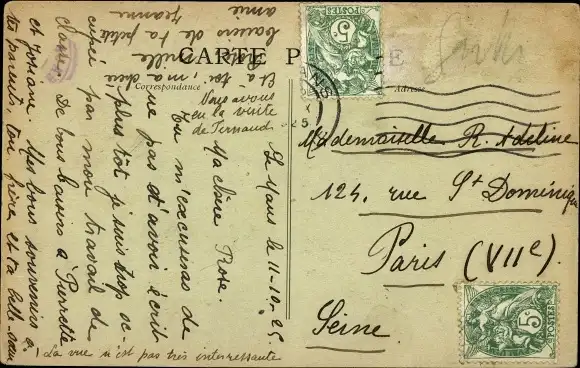 CARTE P
Correspondance
Adresse
POSTES
5c
Le Mans le 11-10-25
Ma chère Rose.
Tu m'excuseras de
ne pas t'avoir écrit
plus tôt je suis trop oc
cupée par mon travail de
classe. De bons baisers à Pierrette
et Josiane. Mes bons souvenirs à
tes parents, ton frère et ta belle-sœur
Et à toi, ma chère
baisers de ta petite
amie
Jeanne
Nous avons
eu la visite
de Fernand
La vue n'est pas très interressante
Mademoiselle R. Adeline
124, rue St Dominique
Paris (VIIe).
Seine
5c
POSTES